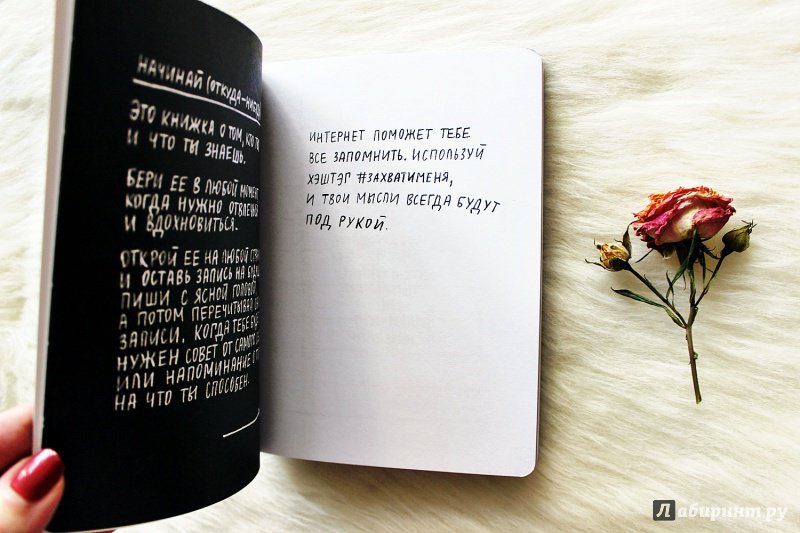 НАЧИНАЙ (ОТКУДА-
ЭТО КНИЖКА О ТОМ, КТО ТЫ
И ЧТО ТЫ ЗНАЕШЬ.
БЕРИ ЕЕ В ЛЮБОЙ МОМЕНТ,
КОГДА НУЖНО
И ВДОХНОВИТЬСЯ.
ОТКРОЙ ЕЕ НА ЛЮБОЙ
И ОСТАВЬ ЗАПИСЬ НА
ПИШИ С ЯСНОЙ ГОЛОВОЙ
А ПОТОМ ПЕРЕЧИТЫВАЙ
ЗАПИСИ, КОГДА ТЕБЕ
НУЖЕН СОВЕТ ОТ
ИЛИ НАПОМИНАНИЕ О
НА ЧТО ТЫ СПОСОБЕН.
ИНТЕРНЕТ ПОМОЖЕТ ТЕБЕ
ВСЕ ЗАПОМНИТЬ. ИСПОЛЬЗУЙ
ХЭШТЭГ #ЗАХВАТИМЕНЯ,
И ТВОИ МЫСЛИ ВСЕГДА БУДУТ
ПОД РУКОЙ.
Лабиринт.ру